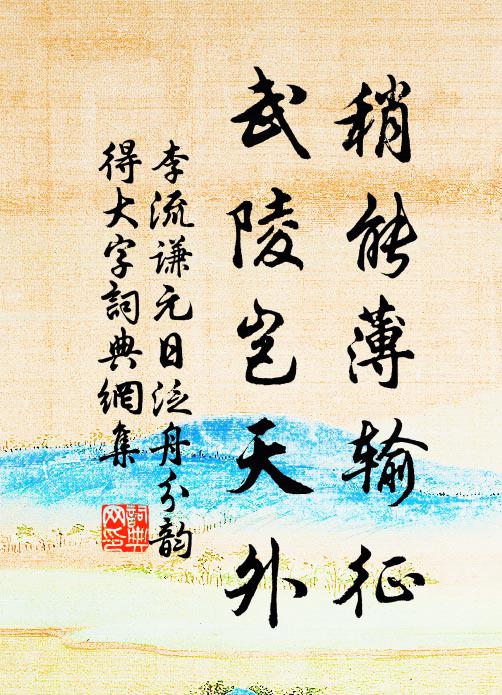 稍能薄输征
武陵岂天外
李流谦元日泛舟分韵
得大字詞典網集